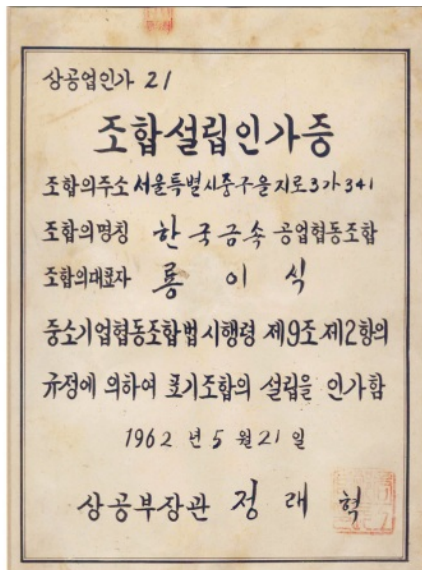 상공업인가 21
조합설립인가증
조합의주소 서울특별시중구을지로3가341
조합의명칭 한국금속 공업협동조합
조합의대표자 룡이식
중소기업협동조합법시행령 제9조제2항의
규정에 의하여 표기조합의 설립을 인가함
1962 년 5 월 21 일
상공부장관 정래혁